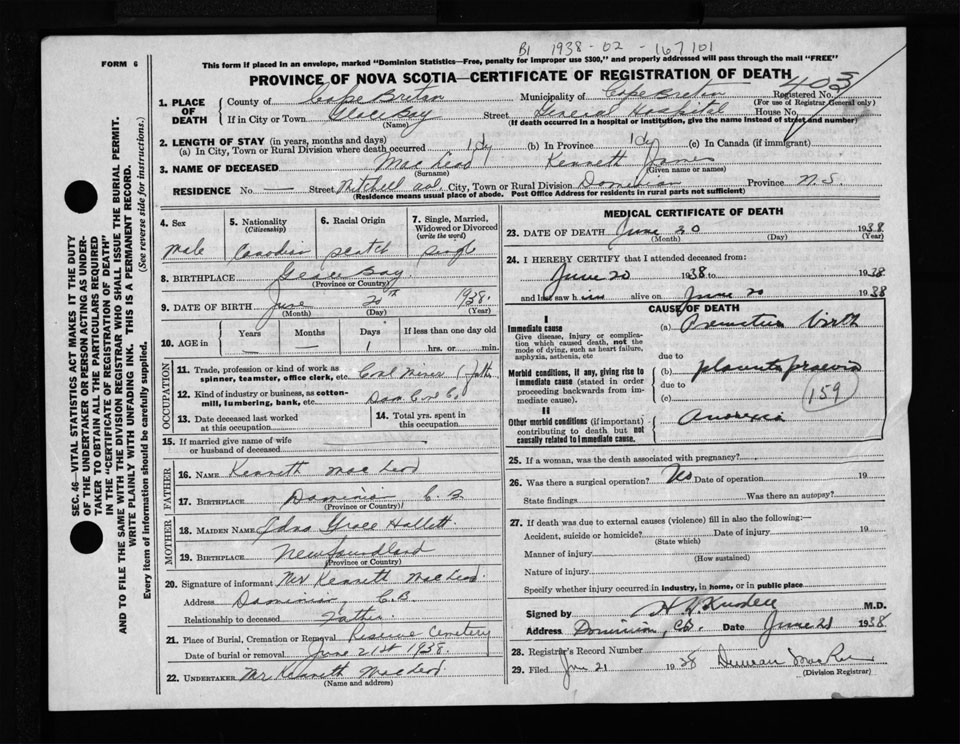 B1 1938-02-167101
FORM 6
This form if placed in an envelope, marked "Dominion Statistics—Free, penalty for improper use $300," and properly addressed will pass through the mail "FREE"
PROVINCE OF NOVA SCOTIA—CERTIFICATE OF REGISTRATION OF DEATH
1. PLACE OF DEATH
County of Cape Breton Municipality of Cape Breton Registered No. 403
(For use of Registrar General only)
If in City or Town Glace Bay Street General Hospital House No.
(Name) (If death occurred in a hospital or institution, give the name instead of street and number)
2. LENGTH OF STAY (in years, months and days)
(a) In City, Town or Rural Division where death occurred 1 dy (b) In Province 1 dy (c) In Canada (if immigrant)
3. NAME OF DECEASED Mac Leod Kenneth James
(Surname) (Given name or names)
RESIDENCE No. — Street Mitchell ave. City, Town or Rural Division Dominion Province N.S.
(Residence means usual place of abode. Post Office Address for residents in rural parts not sufficient)
SEC. 46—VITAL STATISTICS ACT MAKES IT THE DUTY
OF THE UNDERTAKER OR PERSON ACTING AS UNDER-
TAKER TO OBTAIN ALL THE PARTICULARS REQUIRED
IN THE "CERTIFICATE OF REGISTRATION OF DEATH"
AND TO FILE THE SAME WITH THE DIVISION REGISTRAR WHO SHALL ISSUE THE BURIAL PERMIT.
WRITE PLAINLY WITH UNFADING INK. THIS IS A PERMANENT RECORD.
Every item of information should be carefully supplied. (See reverse side for instructions.)
4. Sex 5. Nationality 6. Racial Origin 7. Single, Married,
(Citizenship) Widowed or Divorced
(write the word)
Male Canadian Scotch Single
8. BIRTHPLACE Glace Bay
(Province or Country)
9. DATE OF BIRTH June 20th 1938.
(Month) (Day) (Year)
10. AGE in Years Months Days If less than one day old
— — 1 hrs. or min.
OCCUPATION
11. Trade, profession or kind of work as
spinner, teamster, office clerk, etc. Coal Miner (fath
12. Kind of industry or business, as cotton-
mill, lumbering, bank, etc. Dom Coal Co.
13. Date deceased last worked
at this occupation
14. Total yrs. spent in
this occupation
15. If married give name of wife
or husband of deceased
FATHER
16. NAME Kenneth Mac Leod
17. BIRTHPLACE Dominion C.B
(Province or Country)
MOTHER
18. MAIDEN NAME Edna Grace Hallett.
19. BIRTHPLACE Newfoundland
(Province or Country)
20. Signature of informant Mr Kenneth Mac Leod.
Address Dominion, C.B.
Relationship to deceased Father.
21. Place of Burial, Cremation or Removal Reserve Cemetery
Date of burial or removal June 21st 1938.
22. UNDERTAKER Mr Kenneth MacLeod
(Name and address)
MEDICAL CERTIFICATE OF DEATH
23. DATE OF DEATH June 20 1938
(Month) (Day) (Year)
24. I HEREBY CERTIFY that I attended deceased from:
June 20 1938 to 1938
and last saw him alive on June 20 1938
CAUSE OF DEATH
I
Immediate cause
Give disease, injury or complica-
tion which caused death, not the
mode of dying, such as heart failure,
asphyxia, asthenia, etc
(a) Premature birth
due to
Morbid conditions, if any, giving rise to
immediate cause (stated in order
proceeding backwards from im-
mediate cause).
(b) placenta praevia
due to
(c)
159
II
Other morbid conditions (if important)
contributing to death but not
causally related to immediate cause.
25. If a woman, was the death associated with pregnancy?
26. Was there a surgical operation? Date of operation 19
State findings Was there an autopsy?
27. If death was due to external causes (violence) fill in also the following:—
Accident, suicide or homicide? Date of injury 19
(State which)
Manner of injury
(How sustained)
Nature of injury
Specify whether injury occurred in industry, in home, or in public place
Signed by M.D.
Address Dominion, C.B. Date June 21 1938
28. Registrar's Record Number
29. Filed Jun 21 1938 Duncan
(Division Registrar)